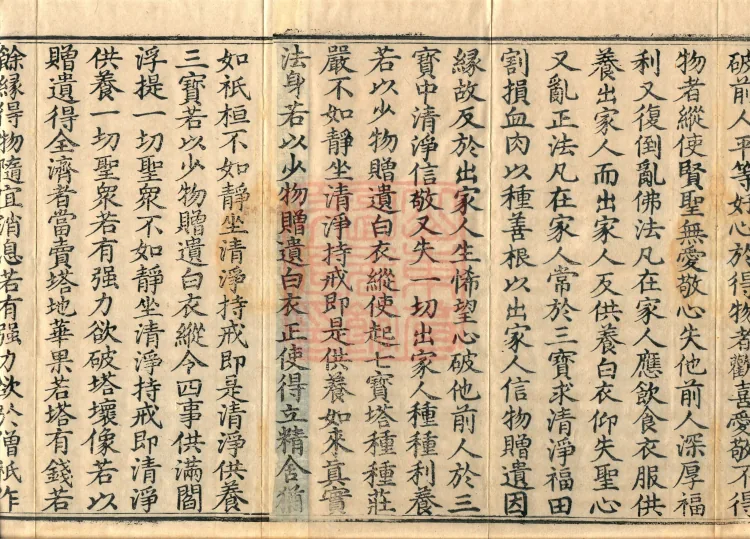 破前人平等好心於得物者歡喜愛敬不得
物者縱使賢聖無愛敬心失他前人深厚福
利又復倒亂佛法凡在家人應飲食衣服供
養出家人而出家人反供養白衣仰失聖心
又亂正法凡在家人常於三寶求清淨福田
割損血肉以種善根以出家人信物贈遺因
緣故反於出家人生悕望心破他前人於三
寶中清淨信敬又失一切出家人種種利養
若以少物贈遺白衣縱使起七寶塔種種莊
嚴不如靜坐清淨持戒即是供養如來真實
法身若以少物贈遺白衣正使得立精舍猶
如祇桓不如靜坐清淨持戒即是清淨供養
三寶若以少物贈遺白衣縱令四事供滿閻
浮提一切聖眾不如靜坐清淨持戒即清淨
供養一切聖眾若有强力欲破塔壞像若以
贈遺得全濟者當賣塔地華果若塔有錢若
餘緣得物隨宜消息若有强力欲於僧祇作